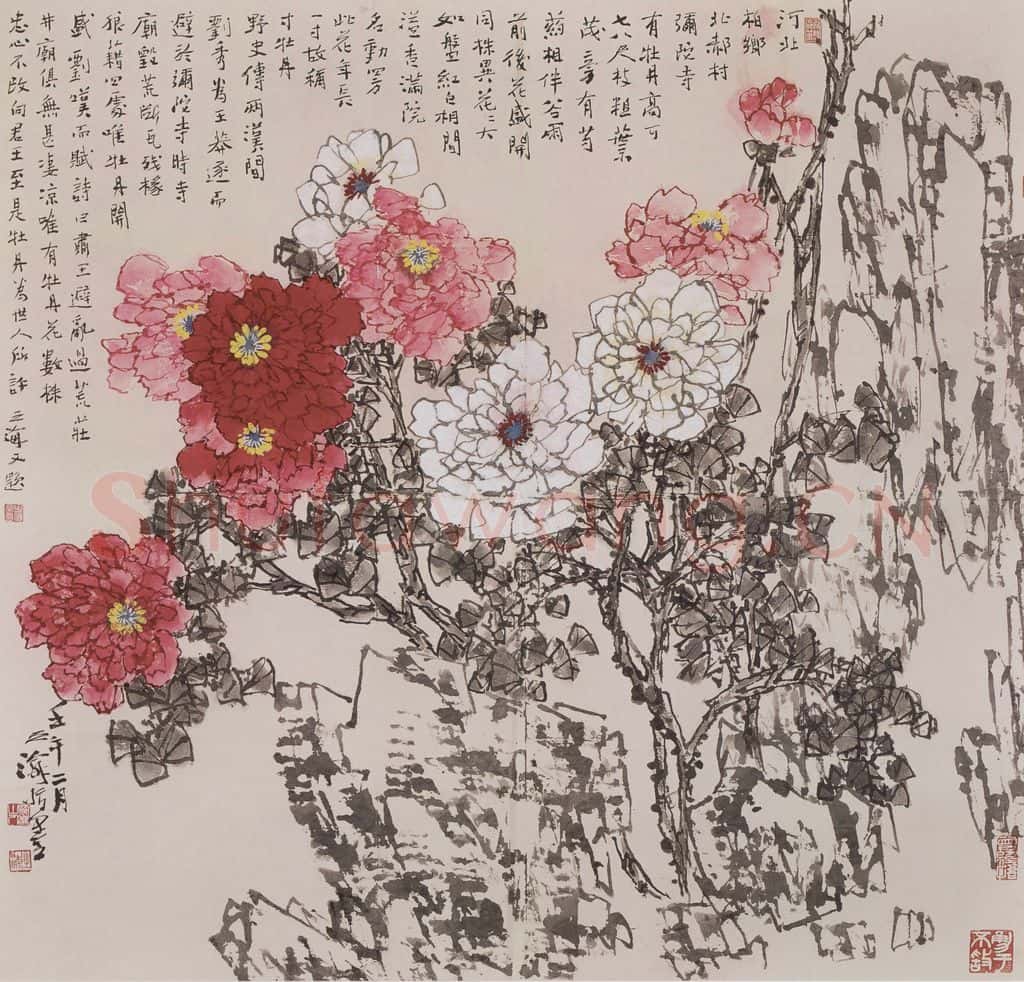 河北
柏鄉
北郝村
彌陀寺
有牡丹高可
七八尺枝粗葉
茂旁有芍
藥相伴谷雨
前後花盛開
同株異花花大
如盤紅白相間
溢香滿院
名動四旁
此花年長
一寸故稱
寸牡丹
野史傳兩漢間
劉秀為王莽逐而
避於彌陀寺時寺
廟毀荒斷瓦殘椽
狼藉四處唯牡丹開
盛劉嘆而賦詩曰肅王避亂過荒莊
井廟俱無甚凄涼唯有牡丹花數株
忠心不改向君王至是牡丹為世人所
三海又題
壬午二月
三海
Shufawang.CN